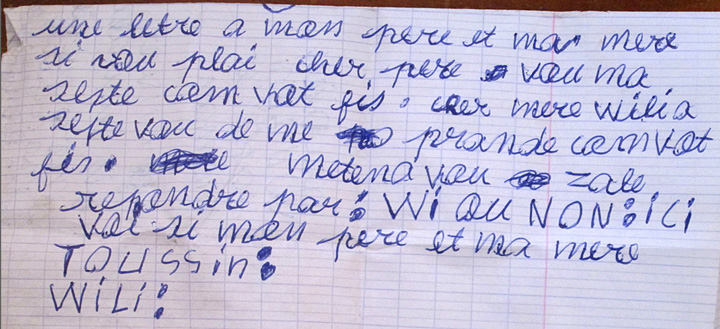 une letre a mon pere et ma mere
si vou plai cher pere vou ma
septe com vot fis. cher mere wilia
septe vou de me prande com vot
fis. metena vou zale
repondre par: Wi OU NON: iLi
voi si mon pere et ma mere
TOUSSiN:
WiLi: